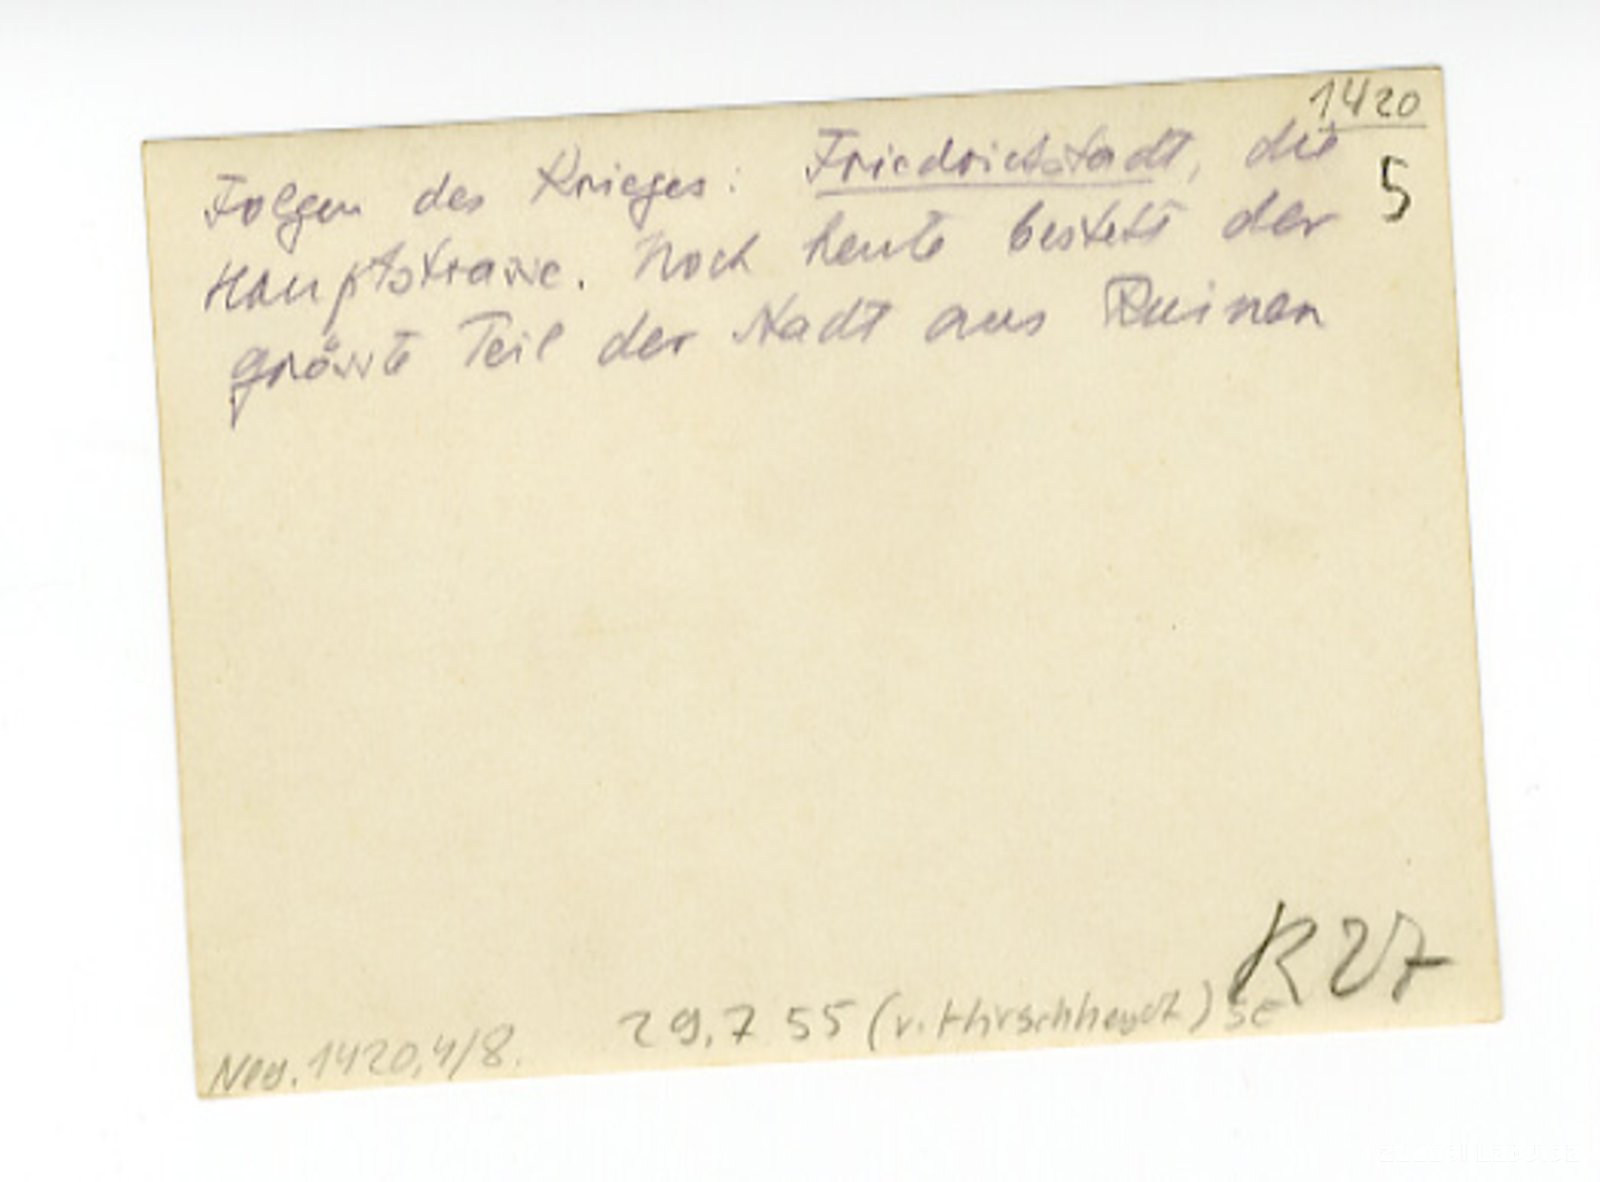 1420
5
Folgen des Krieges: Friedrichstadt, die
Hauptstrasse. Noch heute besteht der
grösste Teil der Stadt aus Ruinen
R 27
29.7 55 (v. Hirschheydt) SE
Neg. 1420,4/8.